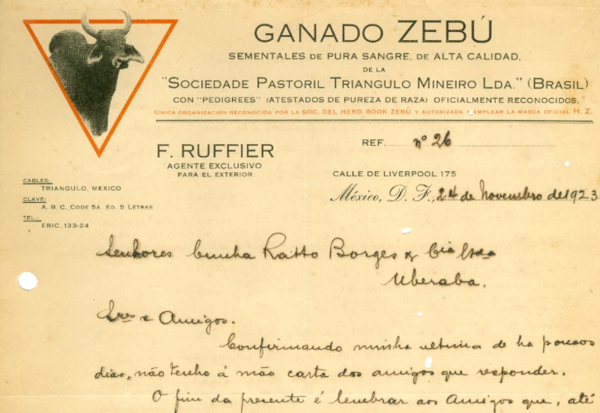 GANADO ZEBÚ
SEMENTALES DE PURA SANGRE, DE ALTA CALIDAD,
DE LA
"SOCIEDADE PASTORIL TRIANGULO MINEIRO LDA." (BRASIL)
CON "PEDIGREES" (ATESTADOS DE PUREZA DE RAZA) OFICIALMENTE RECONOCIDOS.
UNICA ORGANIZACION RECONOCIDA POR LA SOC. DEL HERD BOOK ZEBÚ Y AUTORIZADA A EMPLEAR LA MARCA OFICIAL H. Z.
F. RUFFIER
AGENTE EXCLUSIVO
PARA EL EXTERIOR
REF. nº 26
CALLE DE LIVERPOOL 175
México, D. F., 24 de Novembro de 1923
CABLES:
TRIANGULO, MEXICO
CLAVE:
A. B. C. CODE 5A. ED. 5 LETRAS
TEL.:
ERIC. 133-24
Senhores Cunha Ratto Borges & Cia Ltda
Uberaba.
Sres e Amigos.
Confirmando minha ultima de ha poucos
dias, não tenho á mão carta dos amigos que responder.
O fim da presente é lembrar aos Amigos que, até